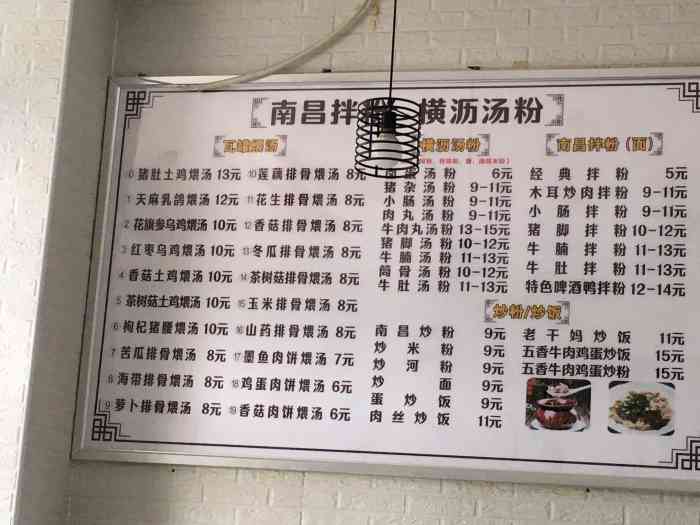 南昌拌粉 横沥汤粉
瓦罐煨汤
0 猪肚土鸡煨汤 13元
1 天麻乳鸽煨汤 12元
2 花旗参乌鸡煨汤 10元
3 红枣乌鸡煨汤 10元
4 香菇土鸡煨汤 10元
5 茶树菇土鸡煨汤 10元
6 枸杞猪腰煨汤 10元
7 苦瓜排骨煨汤 8元
8 海带排骨煨汤 8元
9 萝卜排骨煨汤 8元
10 莲藕排骨煨汤 8元
11 花生排骨煨汤 8元
12 香菇排骨煨汤 8元
13 冬瓜排骨煨汤 8元
14 茶树菇排骨煨汤 8元
15 玉米排骨煨汤 8元
16 山药排骨煨汤 8元
17 墨鱼肉饼煨汤 7元
18 鸡蛋肉饼煨汤 6元
19 香菇肉饼煨汤 6元
横沥汤粉
蛋汤粉 6元
猪杂汤粉 9-11元
小肠汤粉 9-11元
肉丸汤粉 9-11元
牛肉丸汤粉 13-15元
猪脚汤粉 10-12元
牛腩汤粉 11-13元
筒骨汤粉 10-12元
牛肚汤粉 11-13元
南昌拌粉(面)
经典拌粉 5元
木耳炒肉拌粉 9-11元
小肠拌粉 9-11元
猪脚拌粉 10-12元
牛腩拌粉 11-13元
牛肚拌粉 11-13元
特色啤酒鸭拌粉 12-14元
炒粉/炒饭
南昌炒粉 9元
炒米粉 9元
炒河粉 9元
炒面 9元
蛋炒饭 9元
肉丝炒饭 11元
老干妈炒饭 11元
五香牛肉鸡蛋炒饭 15元
五香牛肉鸡蛋炒粉 15元